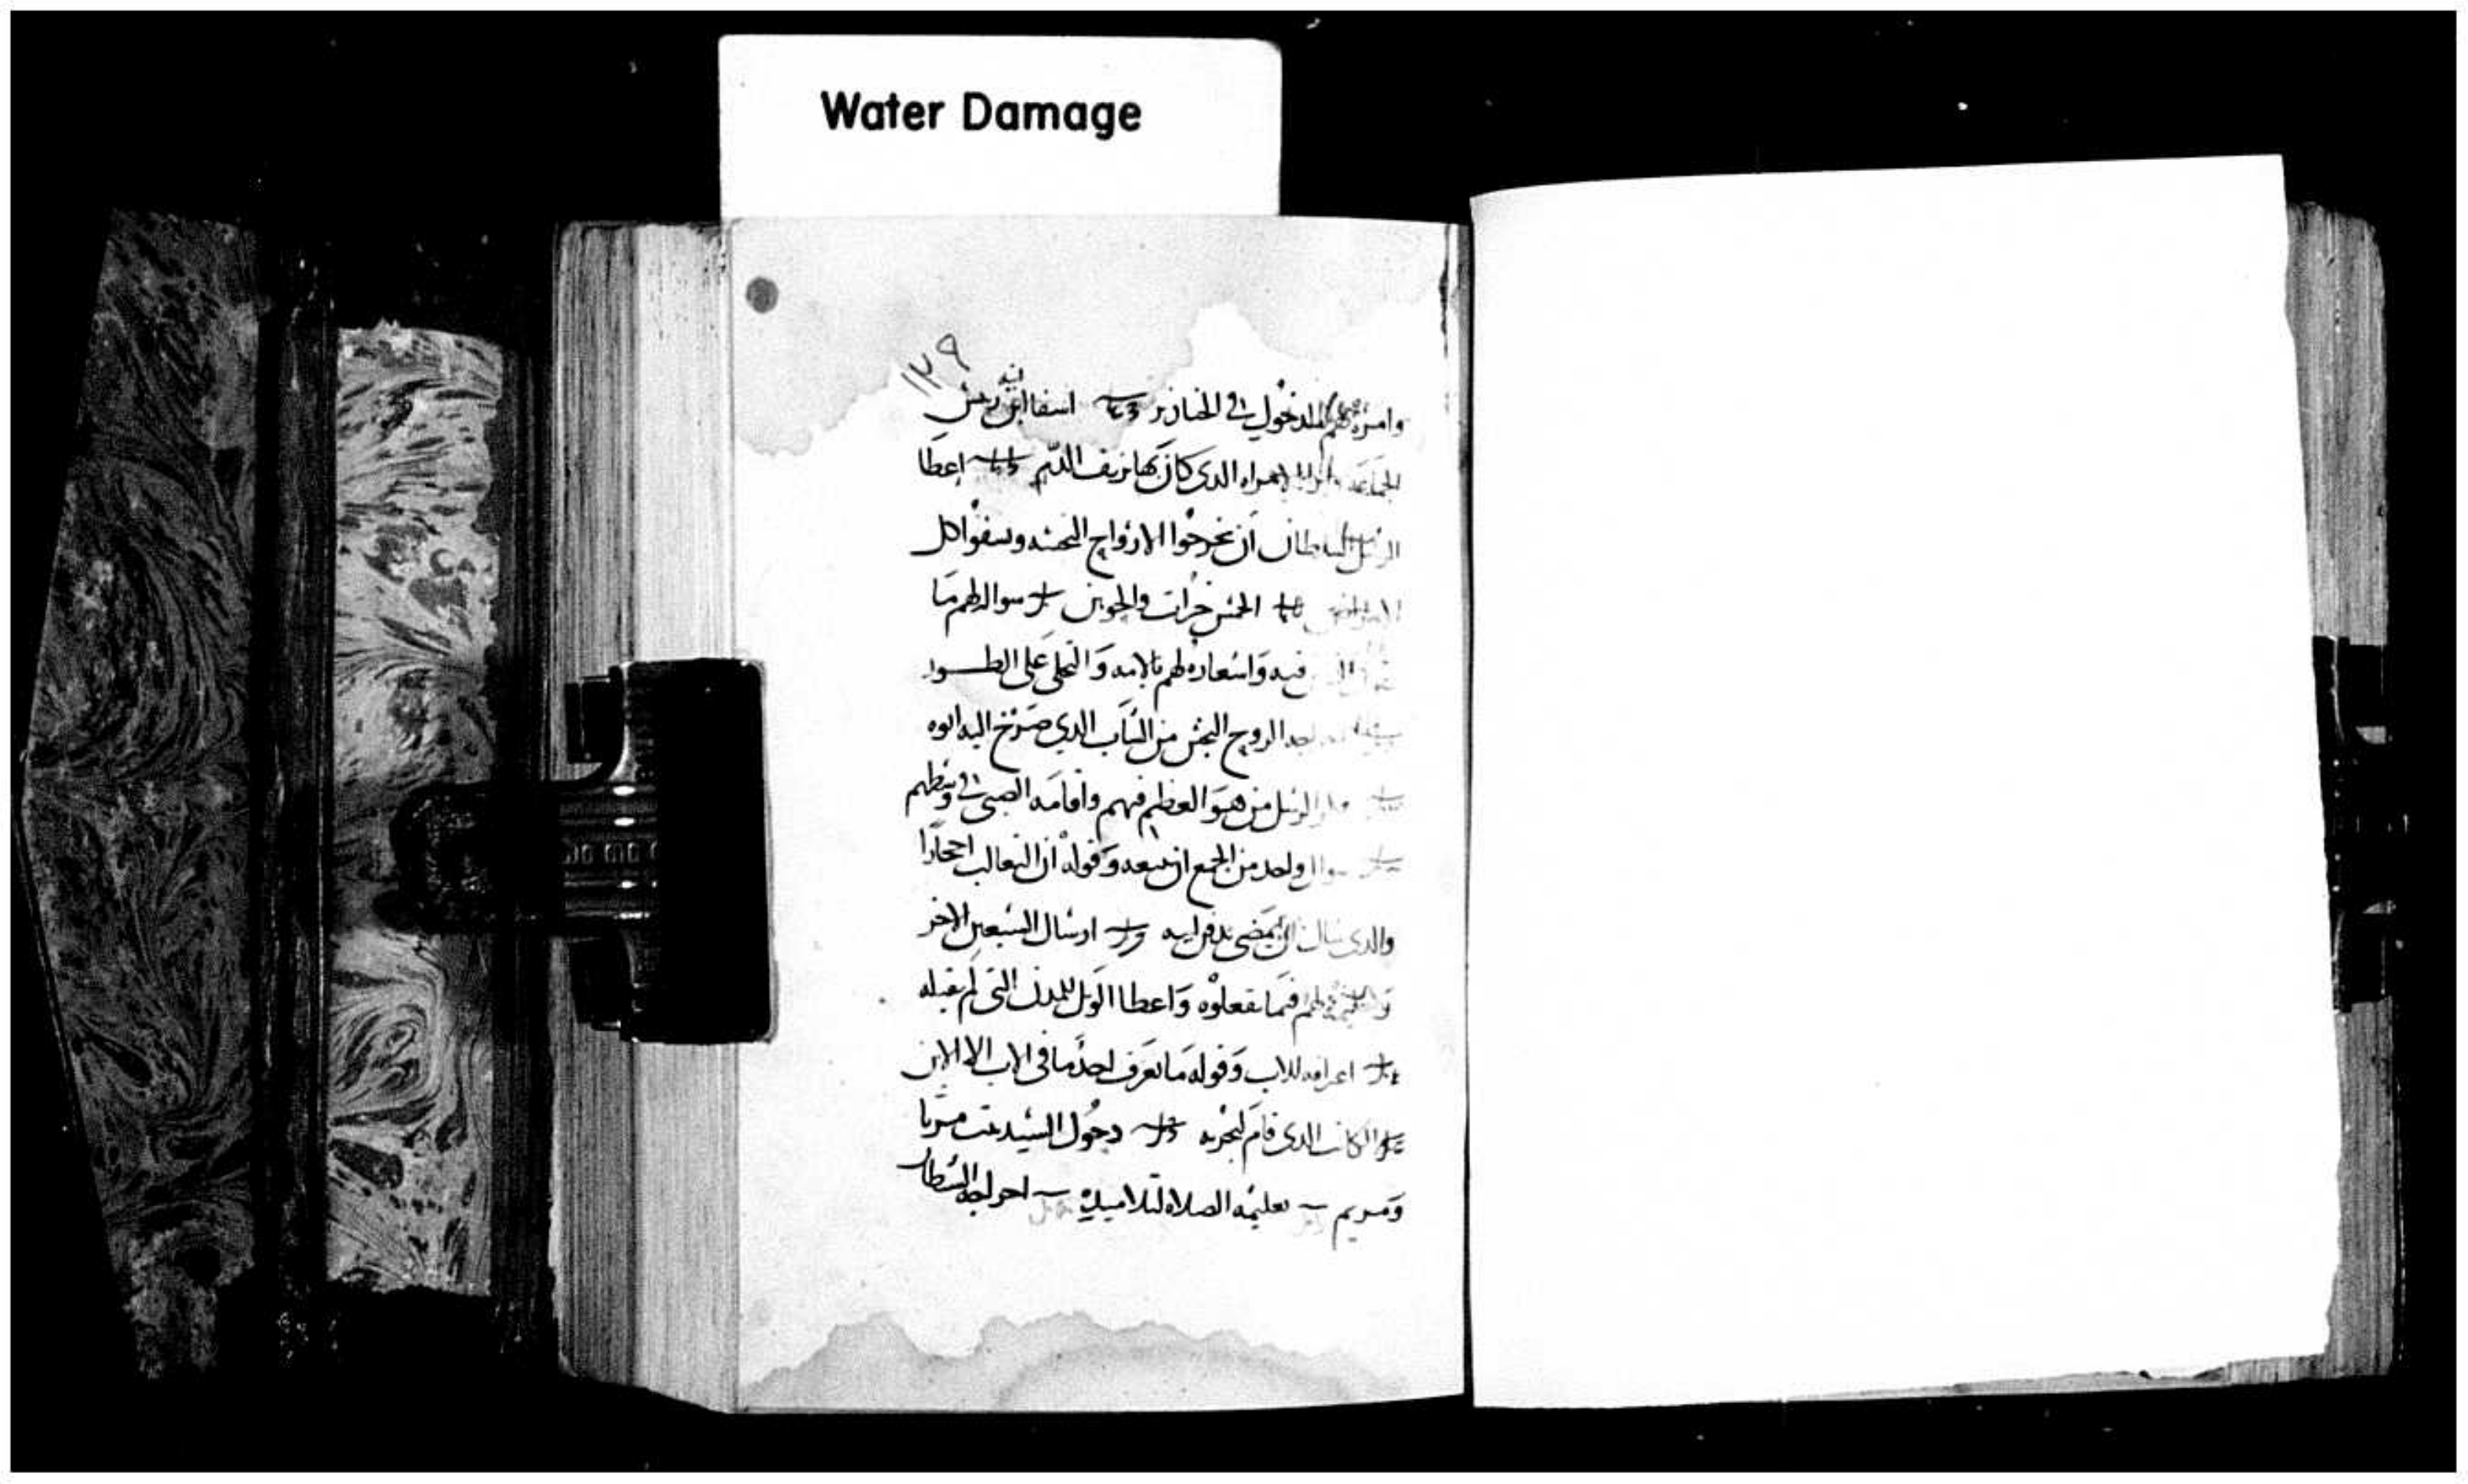 Water Damage
١٢٩
وامره لهم بالدخول في الخنازير اشفا ابنة رئيس
الجماعه وابرا الامراه الذي كان بها نزيف الدم إعطا
الرسل السلطان أن يخرجوا الارواح النجسه ويشفوا كل
الامراض الخمس خبزات والحوتين سواله لهم ما
فيه واشعاره لهم بالامه والتجلي على الطور
الروح النجس من الشاب الذي صرخ اليه ابوه
الرسل من هو العظيم فيهم واقامه الصبي في وسطهم
سوال واحد من الجمع ان يتبعه وقوله ان للتعالب احجارا
والدى سال ان يمضى يدفن ابيه ارسال السبعين الاخر
لهم فيما يفعلوه واعطا الويل للمدن التى لم تقبله
اعترافه للاب وقوله ما يعرف احد ما في الاب الا الابن
الكاتب الدى قام ليجربه دخول السيد بيت مرتا
ومريم تعليمه الصلاه لتلاميده اخراجه الشيطان